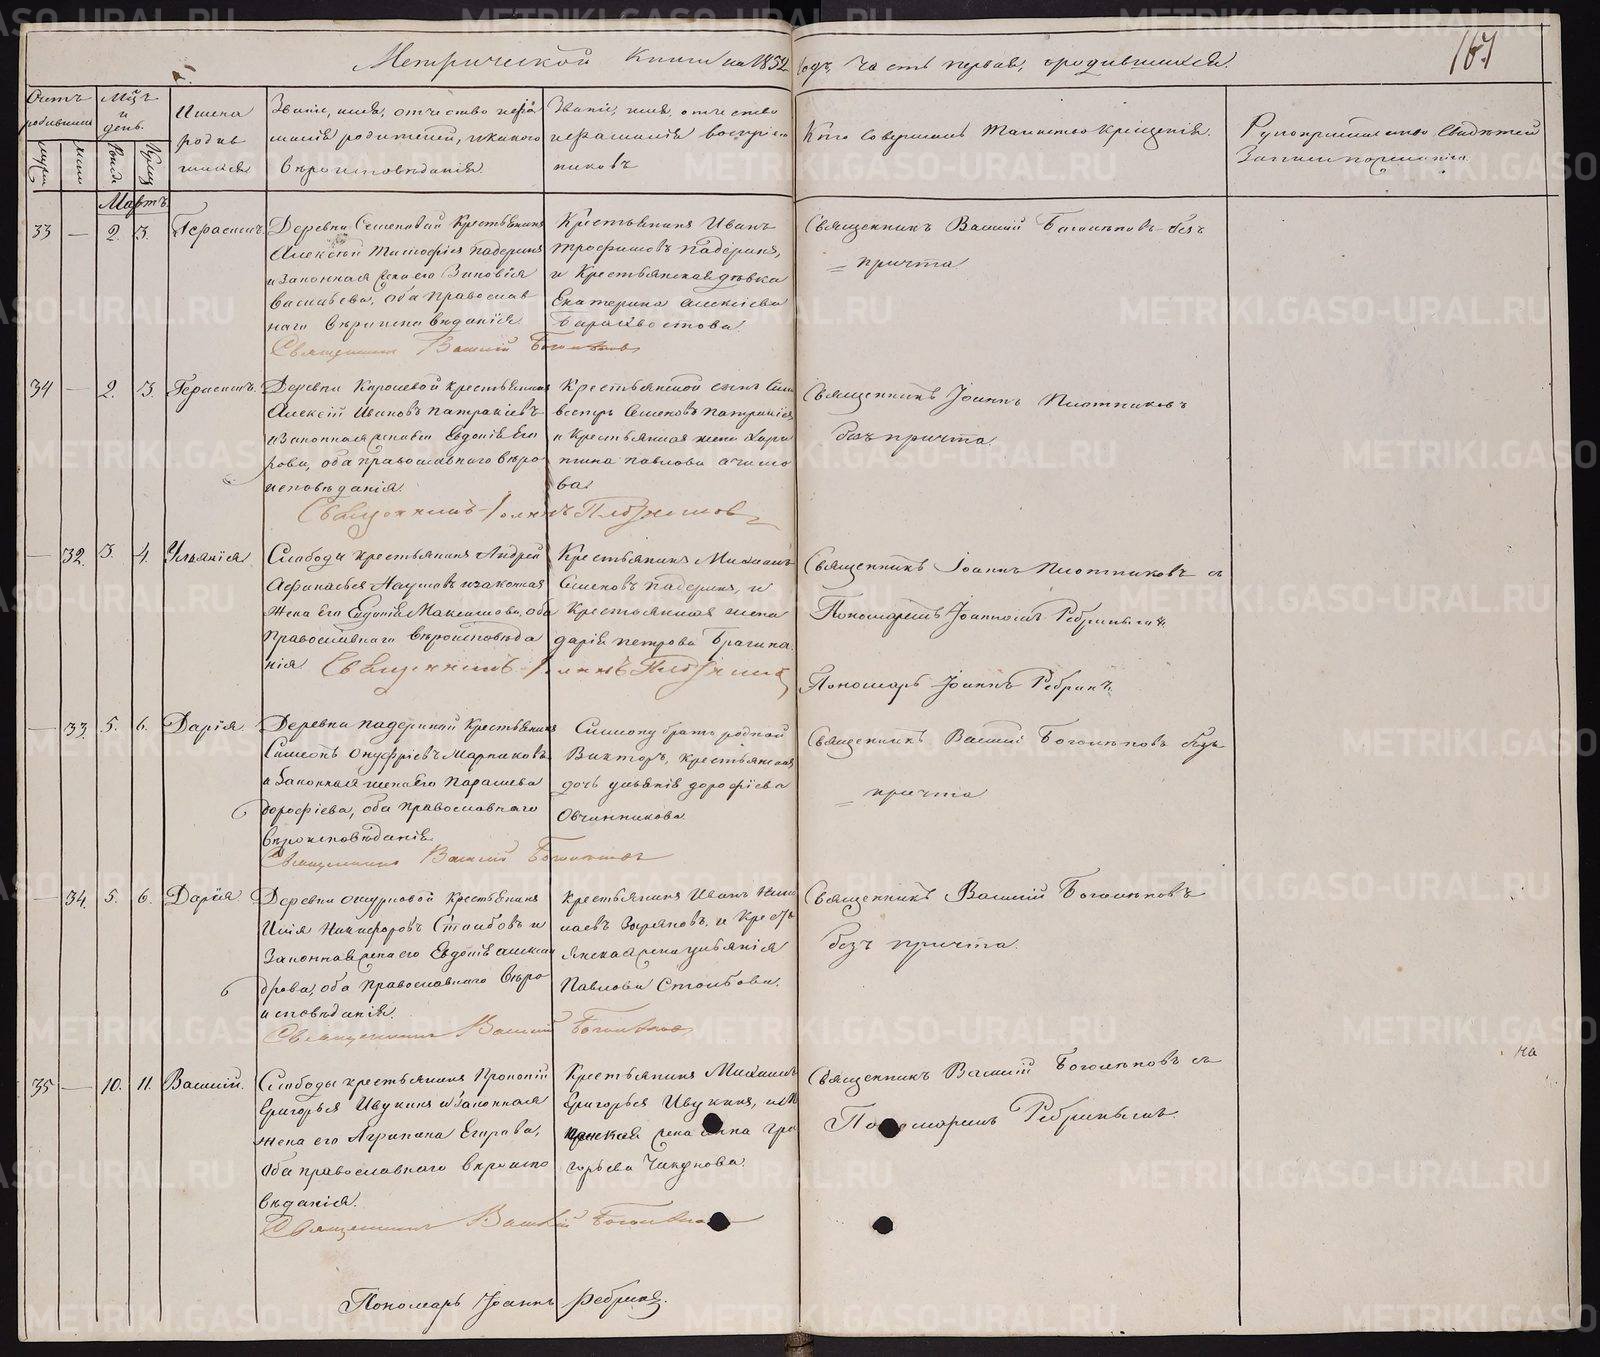 Метрической книги на 1852 годъ, часть первая, о родившихся.
167
Счетъ родившихся
Мѣсяцъ и день.
Имена родившихся
Званіе, имя, отчество и фамилія родителей, и какого вѣроисповѣданія.
Званіе, имя, отчество и фамилія воспріемниковъ
Кто совершалъ таинство крещенія.
Рукоприкладство свидѣтелей записи по желанію.
Мартъ.
33 — 2. 3. Герасимъ.
Деревни Семеновой крестьянинъ
Алексѣй Тимофѣевъ Падеринъ
и законная жена его Зиновія
Васильева, оба православ
наго вѣроисповѣданія.
Крестьянинъ Иванъ
Трофимовъ Падеринъ,
и крестьянская дѣвка
Екатерина Алексіева
Священникъ Василій Боголѣповъ безъ
причта
Священникъ Василій Боголѣповъ
34 — 2. 3. Герасимъ.
Деревни крестьянинъ
Алексѣй Ивановъ
и законная жена его Евдокія Его
рова, оба православнаго вѣро
исповѣданія.
Крестьянской сынъ Сили
вестръ Семеновъ
и крестьянская жена Хари
тина Павлова
ва.
Священникъ Іоаннъ Плотниковъ
безъ причта.
Священникъ Іоаннъ Плотниковъ
— 32. 3. 4. Ульянія.
Слободы крестьянинъ Андрей
Афанасьевъ Наумовъ и законная
жена его Евдокія Максимова, оба
православнаго вѣроисповѣда
нія
Крестьянинъ Михаилъ
Семеновъ Падеринъ, и
крестьянская жена
Дарія Петрова Брагина.
Священникъ Іоаннъ Плотниковъ съ
Пономаремъ Іоанномъ Ребринымъ.
Священникъ Іоаннъ Плотниковъ
Пономарь Іоаннъ Ребринъ.
— 33. 5. 6. Дарія.
Деревни Падериной крестьянинъ
Симеонъ Онуфріевъ
и законная жена его Парасковья
Дорофіева, оба православнаго
вѣроисповѣданія.
Симеону братъ родной
Викторъ, крестьянская
дочь Ульянія Дорофіева
Овчинникова
Священникъ Василій Боголѣповъ безъ
причта
Священникъ Василій Боголѣповъ
— 34. 5. 6. Дарія.
Деревни крестьянинъ
Илія Никифоровъ Столбовъ и
законная жена его Евдокія Алексан
дрова, оба православнаго вѣро
исповѣданія.
Крестьянинъ Иванъ Нико
лаевъ Зыряновъ, и кресть
янская жена Ульянія
Павлова Столбова.
Священникъ Василій Боголѣповъ
безъ причта.
Священникъ Василій Боголѣповъ
35 — 10. 11. Василій.
Слободы крестьянинъ Прокопій
Григорьевъ Ивукинъ и законная
жена его Агрипина Егорова,
оба православнаго вѣроиспо
вѣданія.
Крестьянинъ Михаилъ
Григорьевъ Ивукинъ, и
жена Анна Гри
горьева Чикунова.
Священникъ Василій Боголѣповъ съ
Пономаремъ Ребринымъ.
Священникъ Василій Боголѣповъ
на
Пономарь Іоаннъ Ребринъ.
METRIKI.GASO-URAL.RU